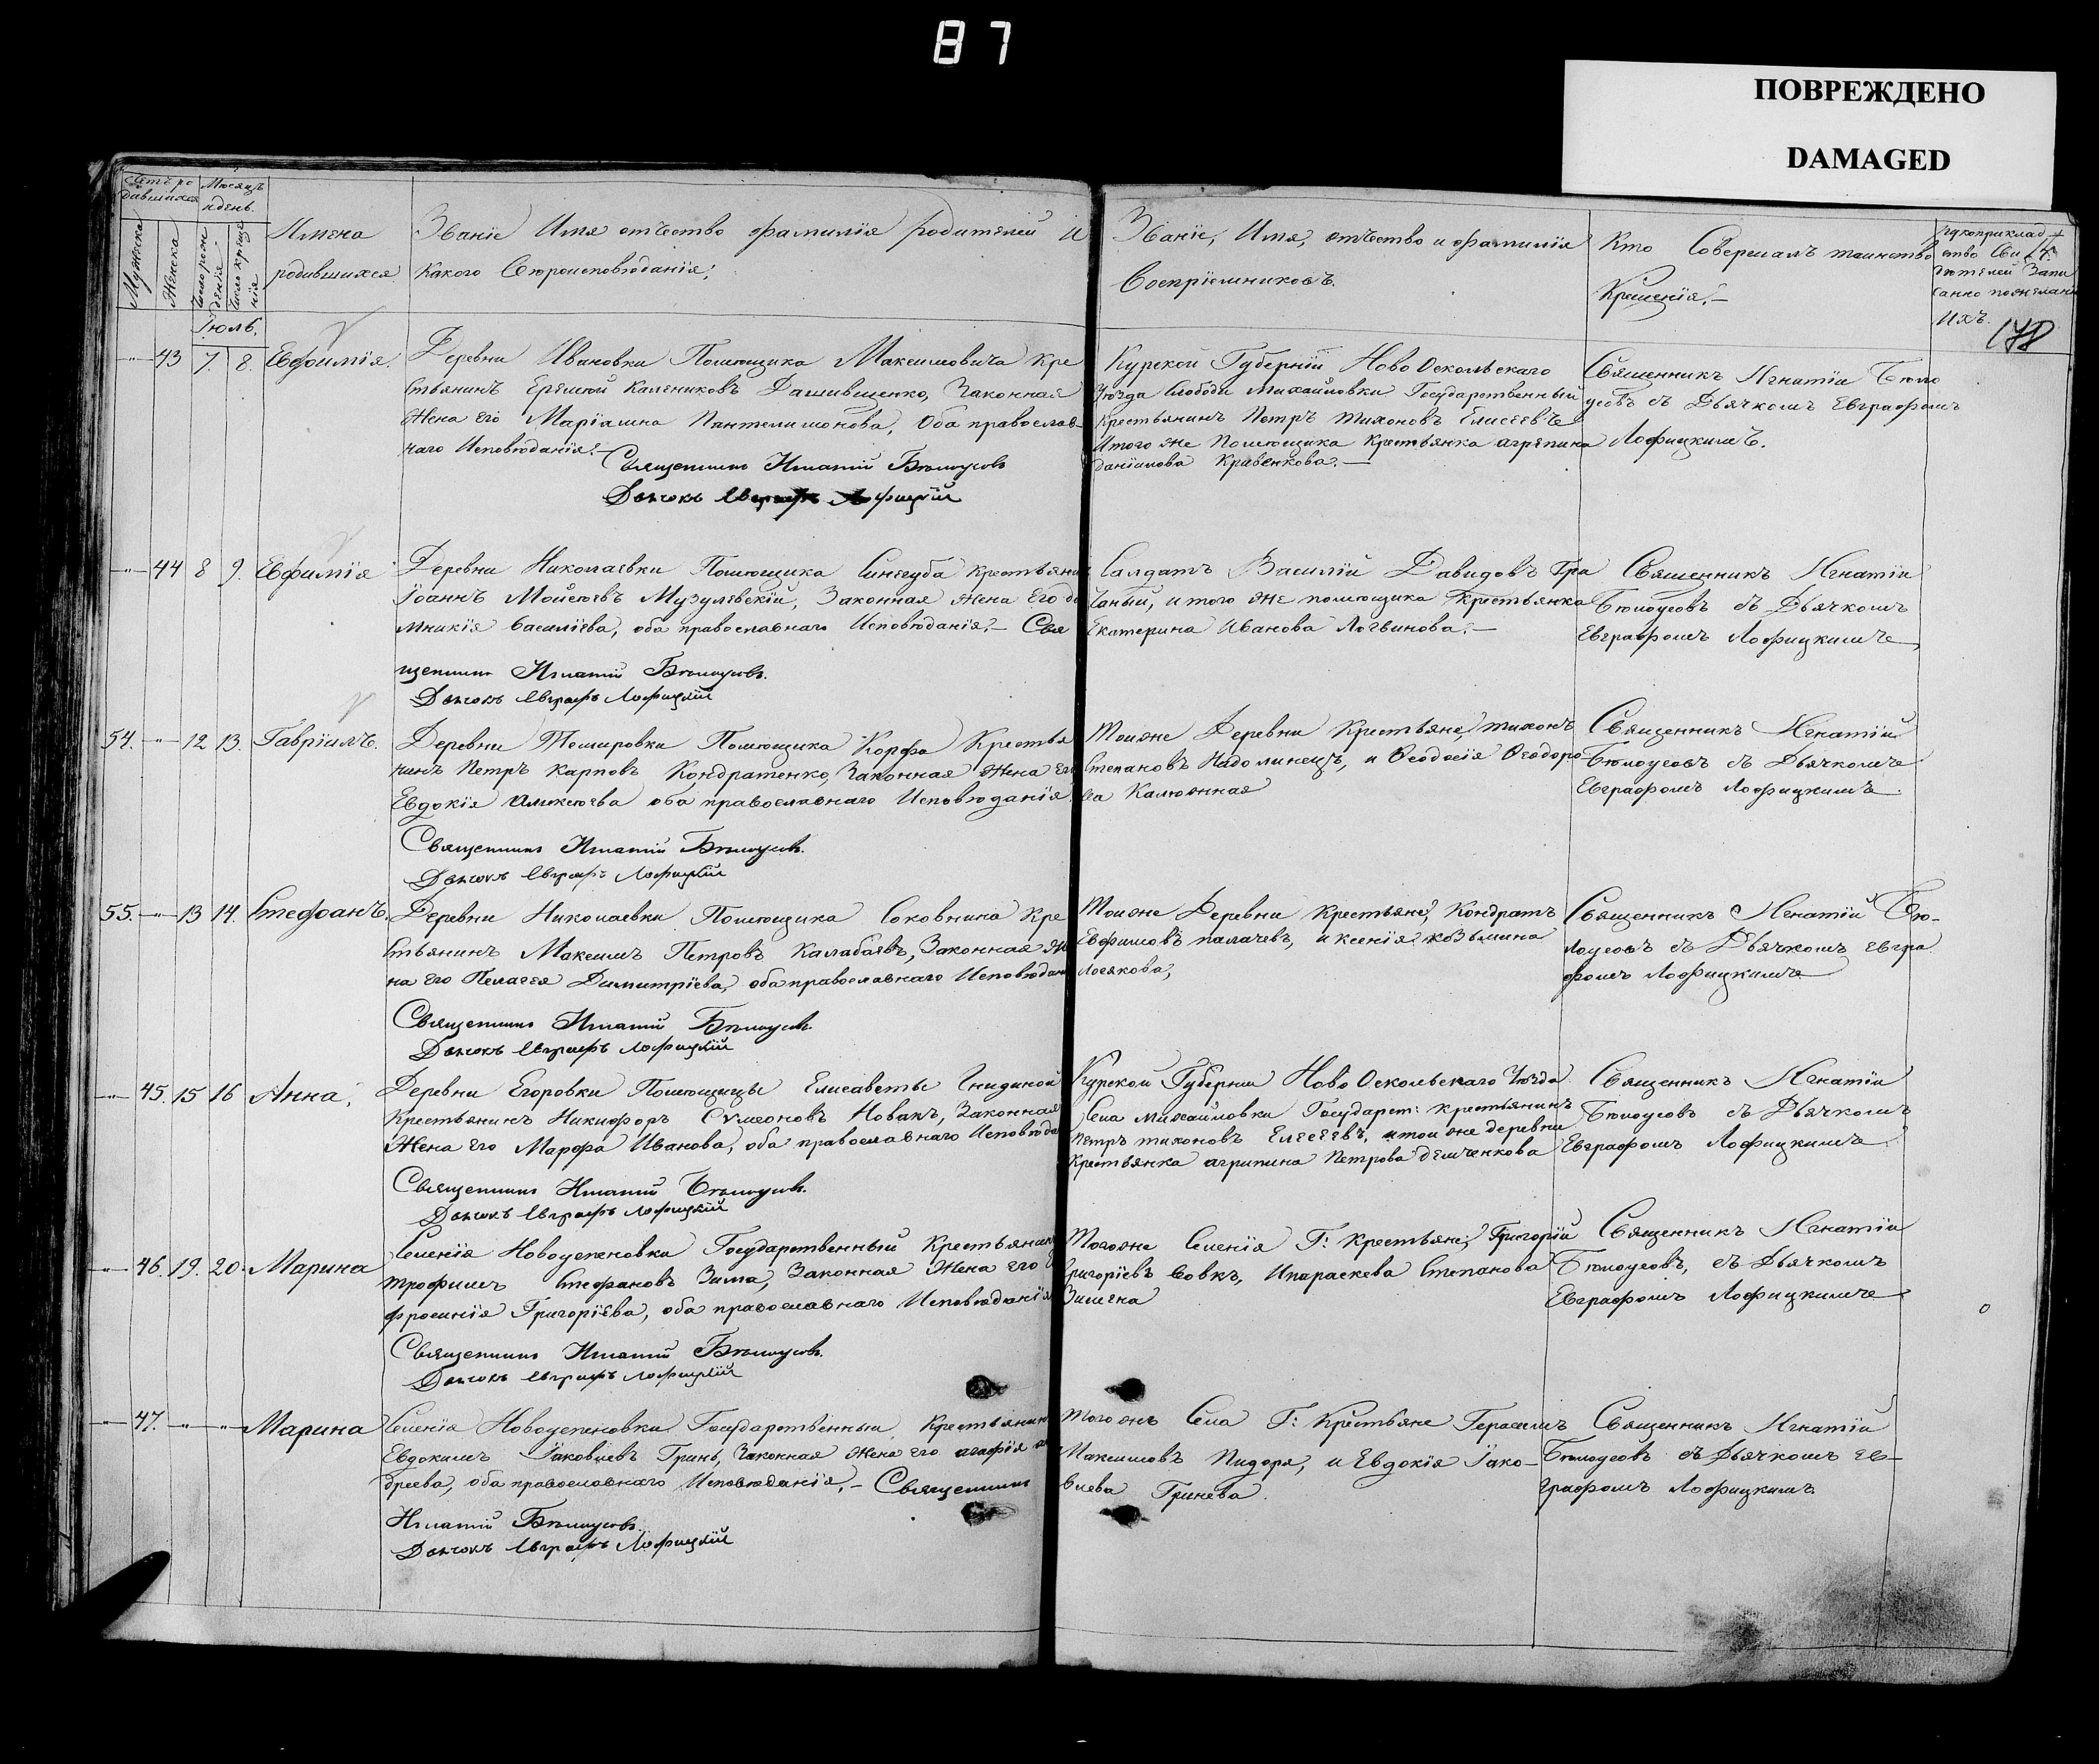 87
ПОВРЕЖДЕНО
DAMAGED
178
Счетъ ро
дившихся
Мѣсяцъ
и день.
Мужеска
Женска
Число рож
денія
Число креще
нія
Имена
родившихся
Званіе Имя отчество фамилія родителей и
какого Вѣроисповѣданія;
Званіе, Имя, отчество и фамилія
Воспріемниковъ.
Кто Совершалъ таинство
Крещенія.—
Рукоприклад
ство Сви дѣтелей Запи
санно по желані
ихъ.
Іюль.
—"— 43 7. 8. Евфимія.
Деревни Ивановки Помѣщика Максимовича кре
стьянинъ Еремѣй Калениковъ Дашивщенко, Законная
Жена его Маріамна Пантелимонова, Оба православ
наго Исповѣданія.—
Священникъ Игнатій Бѣлоусовъ
Дьячокъ Евграфъ Лофицкій
Курской Губерніи Ново Оскольскаго
Уѣзда Слободи Михайловки Государственный
крестьянинъ Петръ Тихоновъ Елисеевъ
И того же Помѣщика крестьянка агрепина
даніилова Кравенкова.—
Священникъ Игнатій Бѣло
усовъ съ Дьячкомъ Евграфомъ
Лофицкимъ.
—"— 44 8 9. Евфимія
Деревни Николаевки Помѣщика Синегуба крестьянинъ
Іоаннъ Мойсѣевъ Музулевскій, Законная жена его до
мникія Василіева, оба православнаго Исповѣданія.— Свя
щенникъ Игнатій Бѣлоусовъ.
Дьячокъ Евграфъ Лофицкій
Салдатъ Василій Давидовъ Гра
чаный, и того же помѣщика крестьянка
Екатерина Иванова Логвинова.—
Священникъ Игнатій
Бѣлоусовъ съ Дьячкомъ
Евграфомъ Лофицкимъ
54. —"— 12 13. Гавріилъ.
Деревни Темировки Помѣщика Корфа Крестья
нинъ Петръ Карповъ Кондратенко, Законная Жена его
Евдокія Алексѣева оба православнаго Исповѣданія.
Священникъ Игнатій Бѣлоусовъ.
Дьячокъ Евграфъ Лофицкій
Тоиже Деревни Крестьяне, тихонъ
Степановъ Надолинецъ, и Феодосія Феодоро
ва Калюжная
Священникъ Игнатій
Бѣлоусовъ съ Дьячкомъ
Евграфомъ Лофицкимъ.
55. —"— 13 14. Стефанъ.
Деревни Николаевки Помѣщика Соковнина Кре
стьянинъ Максимъ Петровъ Калабаевъ, Законная же
на его Пелагея Димитріева, оба православнаго Исповѣдан
Священникъ Игнатій Бѣлоусовъ.
Дьячокъ Евграфъ Лофицкій
Тоиже Деревни крестьяне, Кондратъ
Евфимовъ палачевъ, и ксенія козьмина
Лосякова,
Священникъ Игнатій Бѣ-
лоусовъ съ Дьячкомъ Евгра
фомъ Лофицкимъ
—"— 45. 15 16 Анна,
Деревни Егоровки Помѣщицы Елисаветы Гнидиной
Крестьянинъ Никифоръ Сумеоновъ Новакъ, Законная
Жена его Марфа Иванова, оба православнаго Исповѣда
Священникъ Игнатій Бѣлоусовъ.
Дьячокъ Евграфъ Лофицкій
Курской Губерніи Ново Оскольскаго Уѣзда
Села михайловки Государст: крестьянинъ
Петръ тихоновъ Елесеевъ, и тои же деревни
Крестьянка агрипина Петрова демченкова
Священникъ Игнатій
Бѣлоусовъ съ Дьячкомъ
Евграфомъ Лофицкимъ.
—"— 46. 19. 20. Марина
Селенія Новоуспеновки Государственный Крестьянинъ
трофимъ Стефановъ Зима, Законная Жена его Е
фросинія Григоріева, оба православнаго Исповѣданія
Священникъ Игнатій Бѣлоусовъ.
Дьячокъ Евграфъ Лофицкій
Тогоже Селенія Г: крестьяне, Григорій
Григоріевъ Вовкъ, Ипараскева Степанова
Зимена
Священникъ Игнатій
Бѣлоусовъ, съ Дьячкомъ
Евграфомъ Лофицкимъ
—"— 47. —"— "— Марина
Селенія Новоуспеновки Государственный Крестьянинъ
Евдокимъ Іаковлевъ Гринь, Законная жена его агафія ан
дреева, оба православнаго Исповѣданія.— Священникъ
Игнатій Бѣлоусовъ.
Дьячокъ Евграфъ Лофицкій
Тогожъ Села Г: Крестьяне Герасимъ
Максимовъ Пидоря, и Евдокія Іако-
влева Гринева.
Священникъ Игнатій
Бѣлоусовъ съ Дьячкомъ Ев-
графомъ Лофицкимъ.